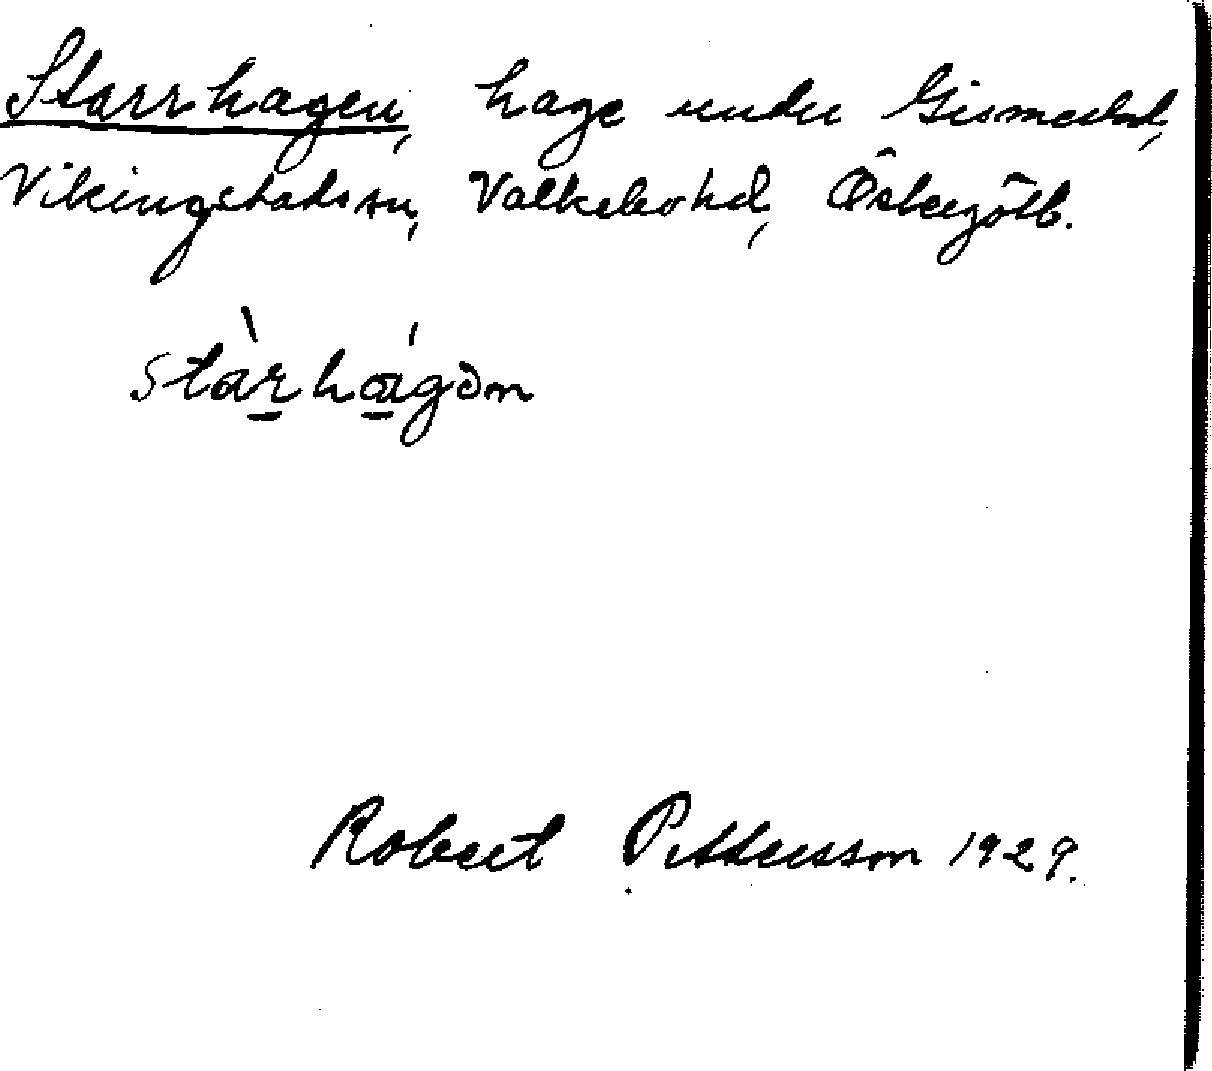 Starrhagen, hage under Gismestad,
Vikingstads sn, Valkebo hd, Östergötl.
stàrhágən
Robert Pettersson 1929.